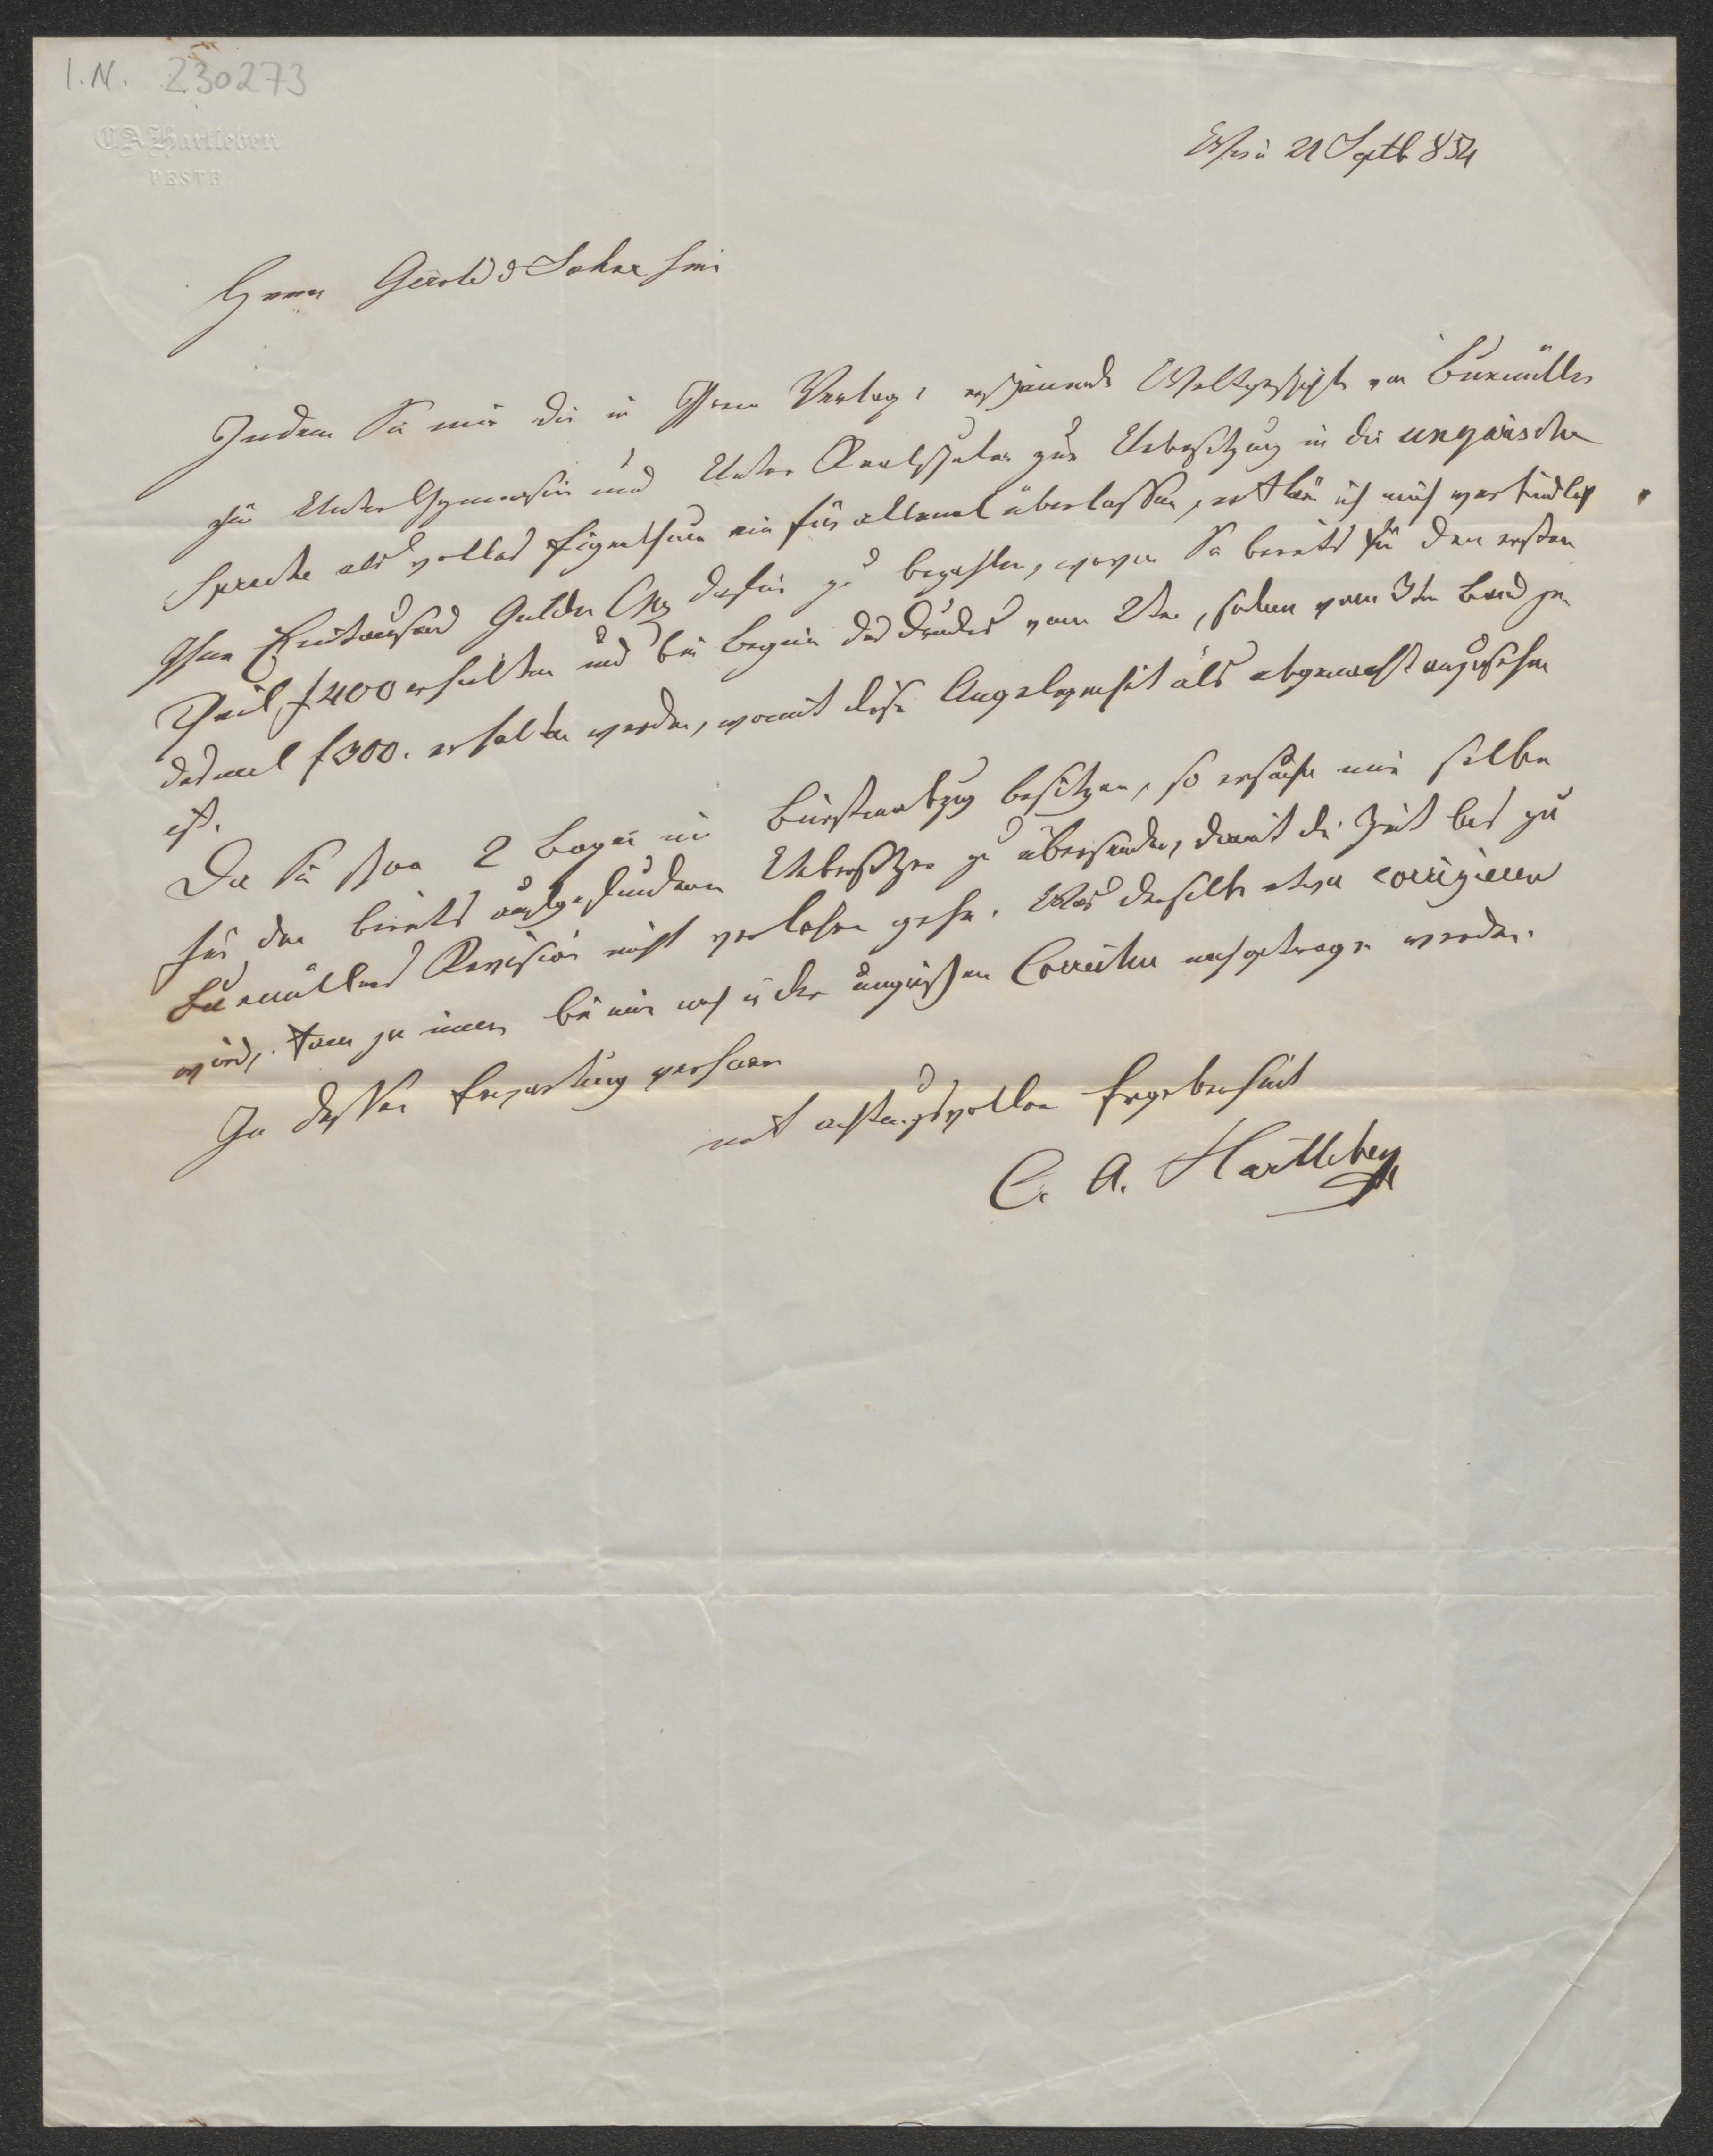 I.N. 230273
C A Hartleben
PESTH
Wien 21 Septb 854
Herrn Gerold & Sohn hier
Indem Sie mir die in Ihrem Verlage erscheinende Weltgeschichte von Bumüller
für Unter Gymnasien und Unter Realschulen zur Uebersetzung in die ungarische
Sprache als volles Eigenthum ein für allemal überlassen, erkläre ich mich verbindlich
Ihnen Eintausend Gulden CMz dafür zu bezahlen, wovon Sie bereits für den ersten
Theil f 400 erhielten und bei Beginn des Druckes vom 2ten, sodann vom 3ten Band je-
desmal f 300. erhalten werden, womit diese Angelegenheit als abgemacht anzusehen
ist.
Da Sie schon 2 Bogen im Bürstenabzug besitzen, so ersuche mir selbe
für den bereits aufgefundenen Uebersetzer zu übersenden, damit die Zeit bis zu
Bumüllers Revision nicht verloren gehe. Was derselbe etwa corrigieren
wird, kann ja immer bei mir noch in der ungrischen Correctur nachgetragen werden.
In dessen Erwartung verharre
mit achtungsvoller Ergebenheit
C. A. Hartleben